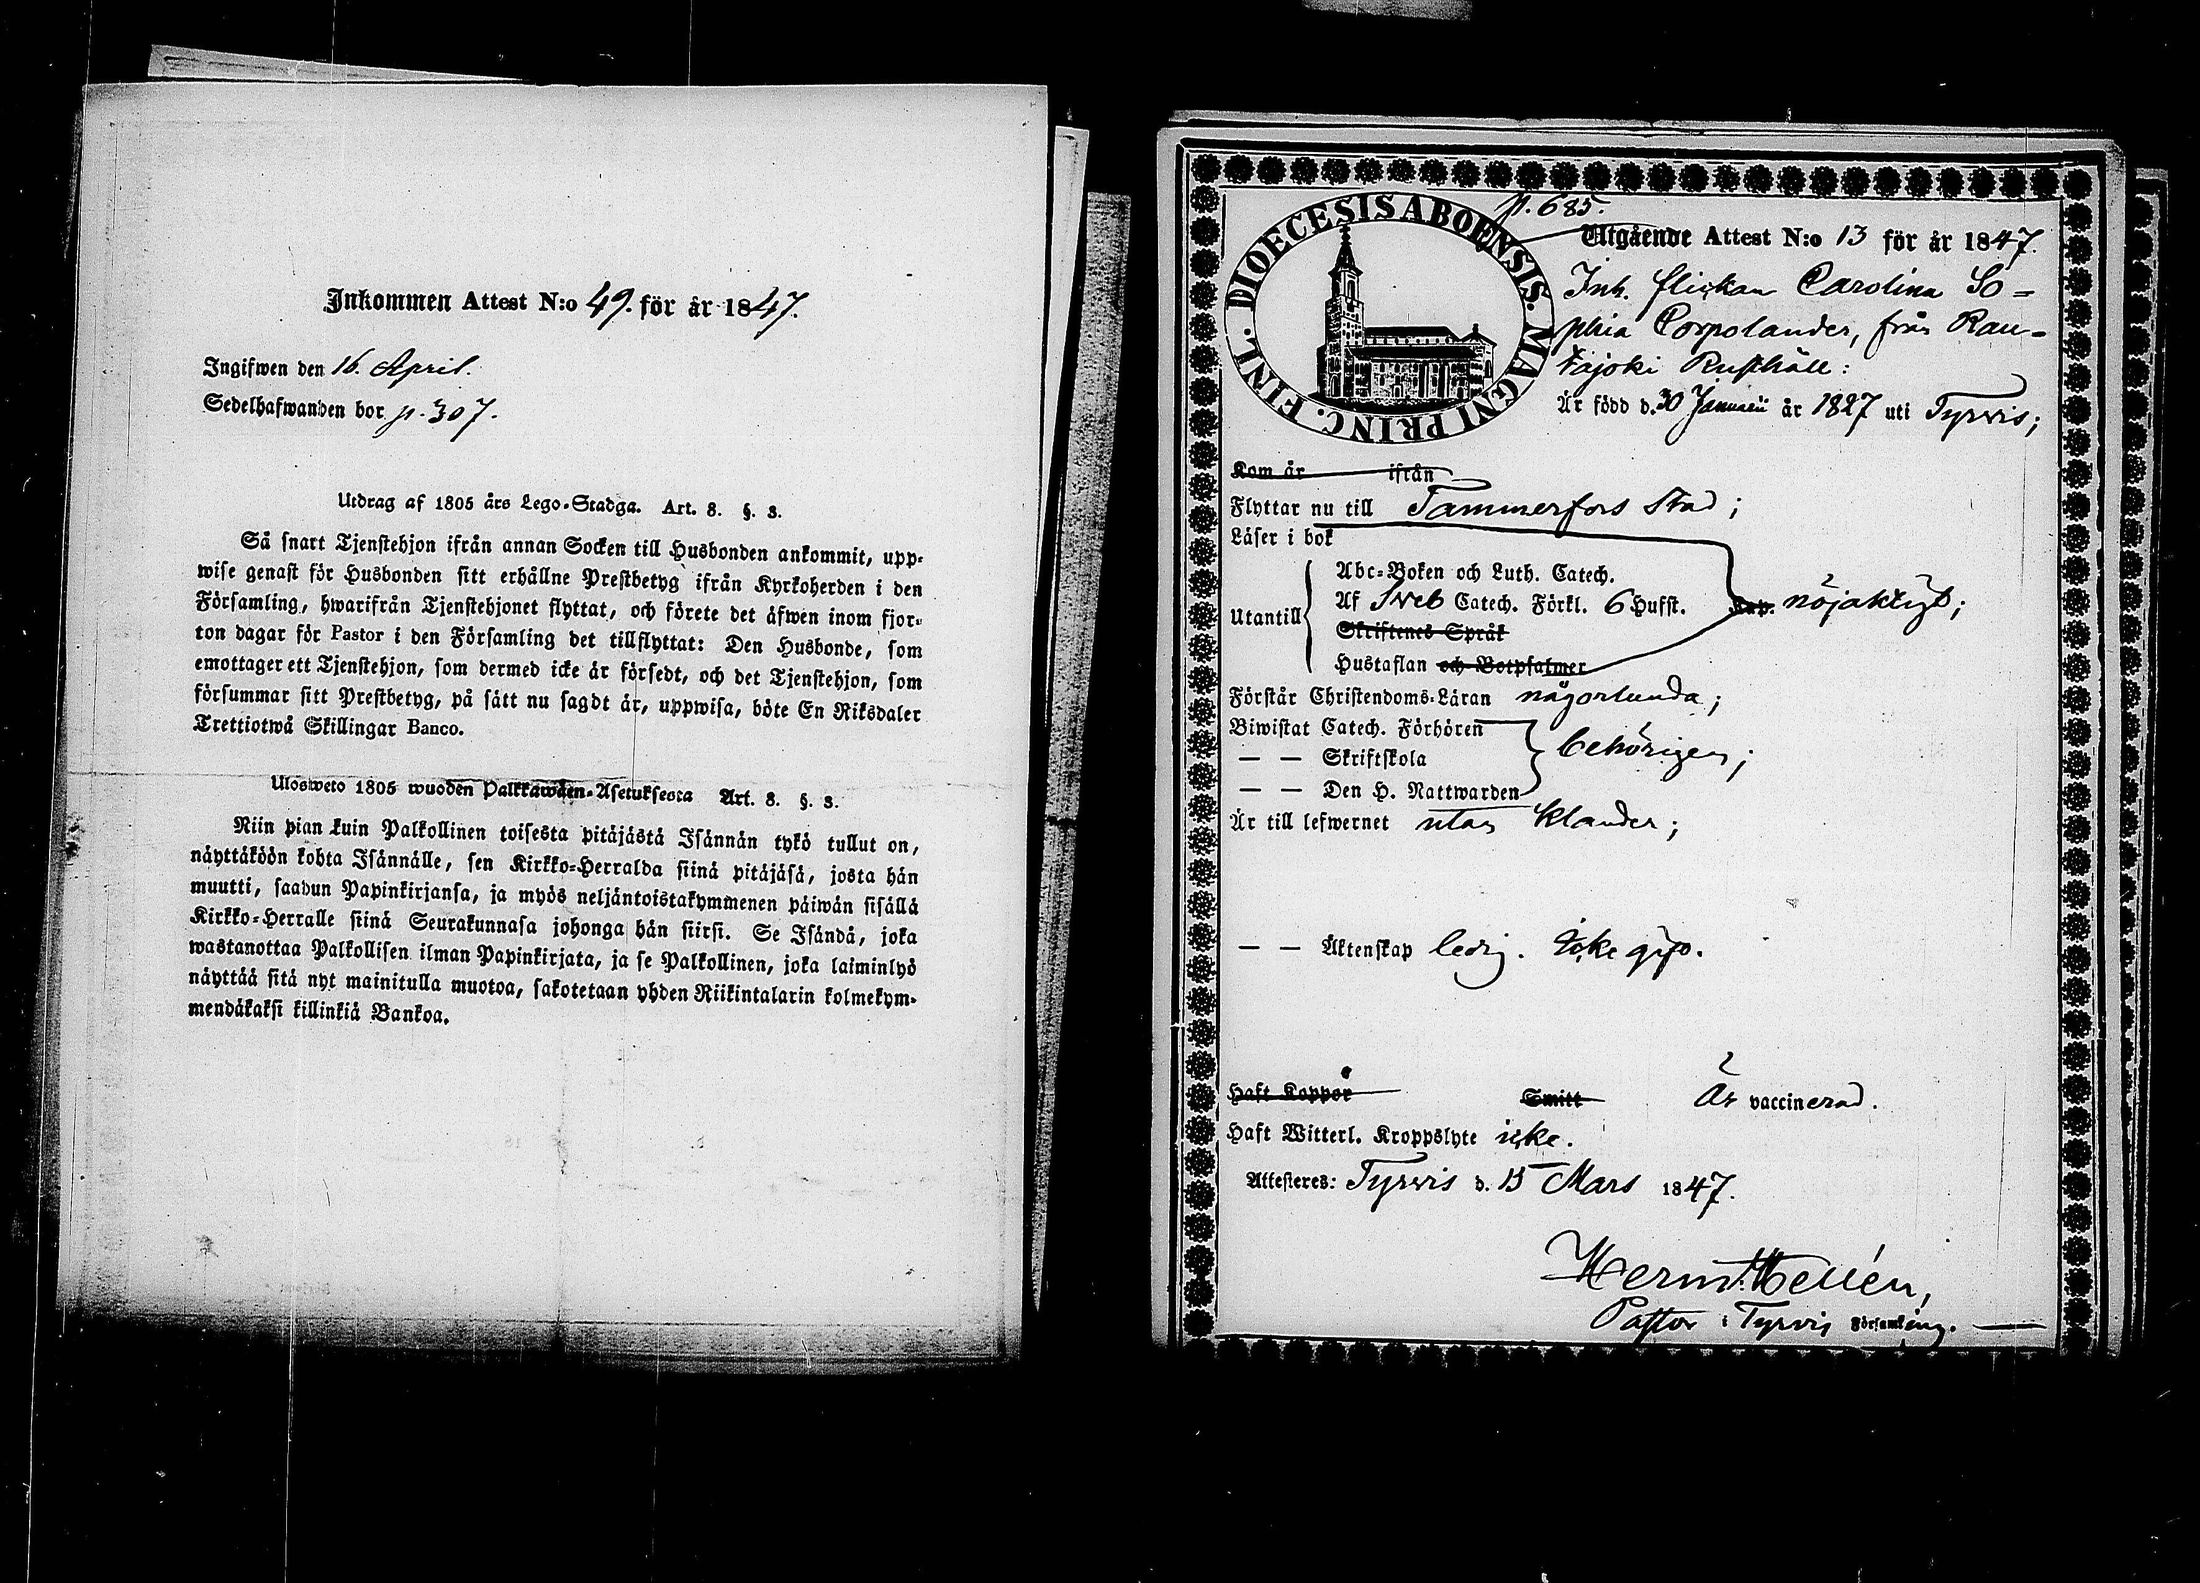 Inkommen Attest N:o 49. för år 1847.
Ingifwen den 16. April.
Sedelhafwanden bor p. 307.
Utdrag af 1805 års Lego-Stadga. Art. 8. §. 3.
Så snart Tjenstehjon ifrån annan Socken till Husbonden ankommit, upp-
wise genast för Husbonden sitt erhållne Prestbetyg ifrån Kyrkoherden i den
Församling, hwarifrån Tjenstehjonet flyttat, och förete det äfwen inom fjor-
ton dagar för Pastor i den Församling det tillflyttat: Den Husbonde, som
emottager ett Tjenstehjon, som dermed icke är försedt, och det Tjenstehjon, som
försummar sitt Prestbetyg, på sätt nu sagdt är, uppwisa, böte En Riksdaler
Trettiotwå Skillingar Banco.
Ulosweto 1805 wuoden Palkkawäen-Asetuksesta Art. 8. §. 3.
Niin pian kuin Palkollinen toisesta pitäjästä Isännän tykö tullut on,
näyttäköön kohta Isännälle, sen Kirkko-Herralda siinä pitäjäsä, josta hän
muutti, saadun Papinkirjansa, ja myös neljäntoistakymmenen päiwän sisällä
Kirkko-Herralle siinä Seurakunnasa johonga hän siirsi. Se Isändä, joka
wastanottaa Palkollisen ilman Papinkirjata, ja se Palkollinen, joka laiminlyö
näyttää sitä nyt mainitulla muotoa, sakotetaan yhden Riikintalarin kolmekym-
mendäkaksi killinkiä Bankoa.
p. 685.
DIOECESIS ABOENSIS. MAGNI PRINC. FINL.
Utgående Attest N:o 13 för år 1847.
Inh. flickan Carolina So-
phia Corpolander, från Rau-
tajoki Rusthåll:
Är född d. 30 Januarii år 1827 uti Tyrvis;
Kom år ifrån
Flyttar nu till Tammerfors Stad;
Läser i bok
Abc-Boken och Luth. Catech.
Utantill Af Sveb Catech. Förkl. 6 Hufst. nöjaktigt;
Skriftenes Språk
Hustaflan och Botpsalmer
Förstår Christendoms-Läran någorlunda;
Biwistat Catech. Förhören
— — Skriftskola behörigen;
— — Den H. Nattwarden
Är till lefwernet utan klander;
— — Äktenskap ledig. Icke gift.
Haft Koppor Smitt Är vaccinerad.
Haft Witterl. Kroppslyte icke.
Attesteres: Tyrvis d. 15 Mars 1847.
Herm: Hellén,
Pastor i Tyrvis Församling.